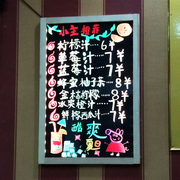 小主推荐
柠檬汁…6¥
草莓汁…7¥
蓝莓汁…7¥
蜂蜜柚子茶…8¥
金桔柠檬…8¥
冰爽橙汁…7¥
鲜榨西瓜汁…7¥
酷爽
夏